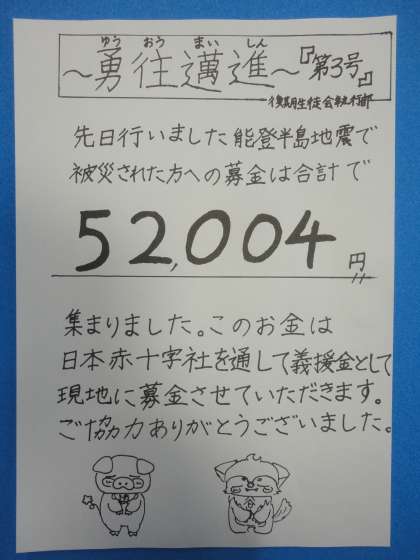 ゆう おう まい しん
～勇往邁進～『第3号』
後期生徒会執行部
先日行いました能登半島地震で
被災された方への募金は合計で
52,004円
集まりました。このお金は
日本赤十字社を通して義援金として
現地に募金させていただきます。
ご協力ありがとうございました。